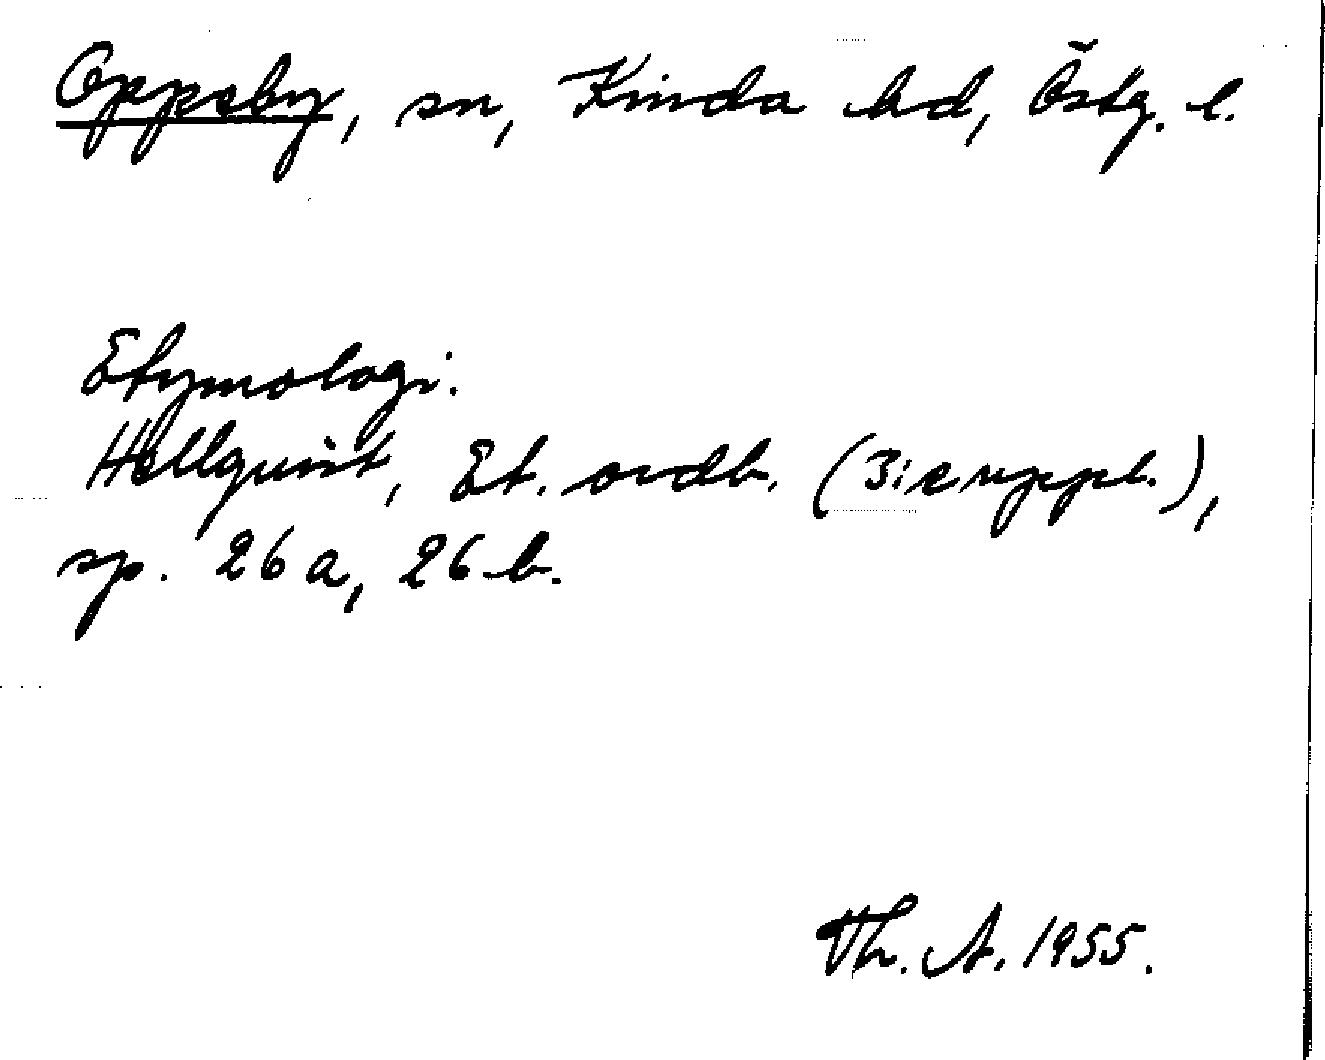 Oppeby, sn, Kinda hd, Östg. l.
Etymologi.
Hellquist, Et. ordb. (3:e uppl.),
sp. 26a, 26b.
Th. A. 1955.